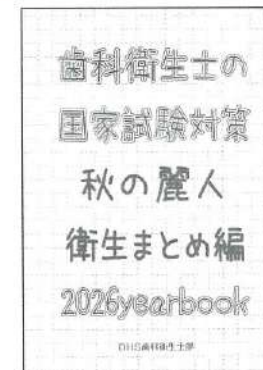 歯科衛生士の
国家試験対策
秋の麗人
衛生まとめ編
2026yearbook
DHS歯科衛生士部